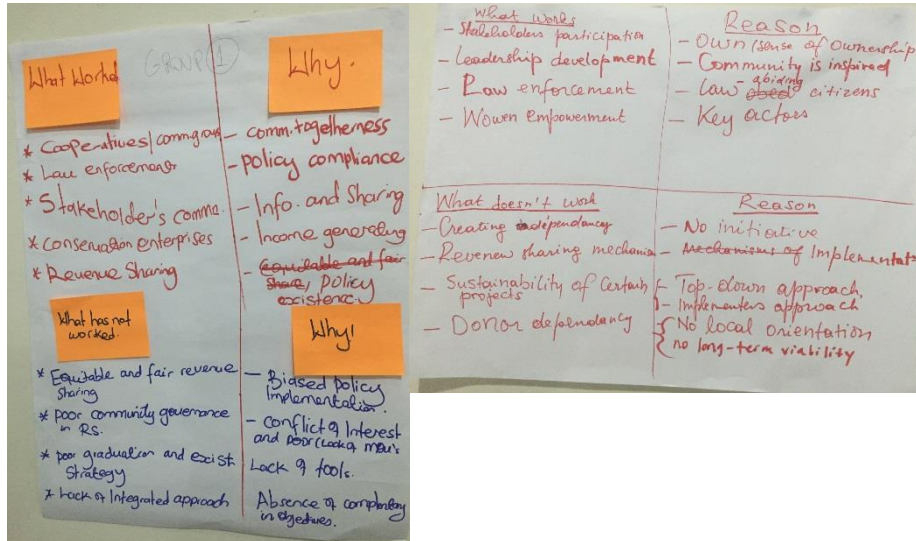 GROUP 1
What Worked
Why.
* Cooperatives/comm.groups
* Law enforcement
* Stakeholder's comm.
* Conservation enterprises
* Revenue Sharing
- comm.togetherness
- policy compliance
- Info. and Sharing
- Income generating
- Equitable and fair
share, policy
existence.
What has not
worked.
Why!
* Equitable and fair revenue
sharing
* poor community governance
in RS.
* poor graduation and exist
Strategy
* Lack of Integrated approach
- Biased policy
Implementation.
- Conflict of Interest
and poor (Lack of MOU's
Lack of tools.
Absence of
in objectives.
What works
- Stakeholders participation
- Leadership development
- Law enforcement
- Women empowerment
Reason
- Own/sense of ownership
- Community is inspired
- Law abiding citizens
- Key actors
What doesn't work
- Creating dependancy
- Revenew sharing mechanism
- Sustainability of certain
projects
- Donor dependancy
Reason
- No initiative
- Mechanisms of Implementat
- Top-down approach
- Implementers approach
- No local orientation
no long-term viability